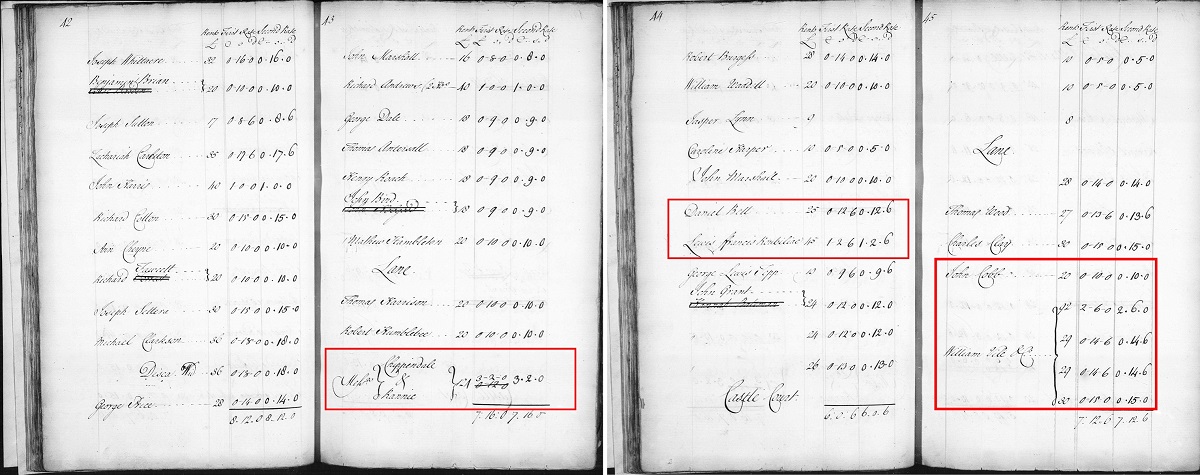 42
Rent First Rate Second Rate
£
Joseph Whittnere 32 0.16.0 0.16.0
Benjamin Brian
20 0.10.0 0.10.0
Joseph Sutton 17 0.8.6 0.8.6
Zachariah Carlton 35 0.17.6 0.17.6
John Harris 40 1.0.0 1.0.0
Richard Cotton 30 0.15.0 0.15.0
Ann Cheyne 20 0.10.0 0.10.0
Fawcett
Richard 20 0.10.0 0.10.0
Joseph 30 0.15.0 0.15.0
Michael Clarkson 36 0.18.0 0.18.0
36 0.18.0 0.18.0
George 28 0.14.0 0.14.0
8.12.0 8.12.0
43
Rent First Rate Second Rate
£
John Marshall 16 0.8.0 0.8.0
Richard Andrews 40 1.0.0 1.0.0
George Dale 18 0.9.0 0.9.0
Thomas 18 0.9.0 0.9.0
Henry Roach 18 0.9.0 0.9.0
John Bird
18 0.9.0 0.9.0
Mathew Humbleton 20 0.10.0 0.10.0
Lane
Thomas Harrison 20 0.10.0 0.10.0
Robert Humblebee 20 0.10.0 0.10.0
Chippendale
Messrs &
Rannie
3.2.0
7.16.0 7.16.0
44
Rent First Rate Second Rate
£
Robert Burgess 28 0.14.0 0.14.0
William Waddell 20 0.10.0 0.10.0
Jasper Lynn 9
Caroline Harper 10 0.5.0 0.5.0
John Marshall 20 0.10.0 0.10.0
Daniel Bell 25 0.12.6 0.12.6
Lewis Francis Roubeliac 45 1.2.6 1.2.6
George Lewis 0.9.6 0.9.6
John Grant
24 0.12.0 0.12.0
24 0.12.0 0.12.0
26 0.13.0 0.13.0
Castle Court
6.0.6 6.0.6
45
Rent First Rate Second Rate
£
10 0.5.0 0.5.0
10 0.5.0 0.5.0
8
Lane
28 0.14.0 0.14.0
Thomas Wood 27 0.13.6 0.13.6
Charles Clay 30 0.15.0 0.15.0
John Cobb 20 0.10.0 0.10.0
2.6.0 2.6.0
29 0.14.6 0.14.6
William &Co
29 0.14.6 0.14.6
30 0.15.0 0.15.0
7.12.6 7.12.6